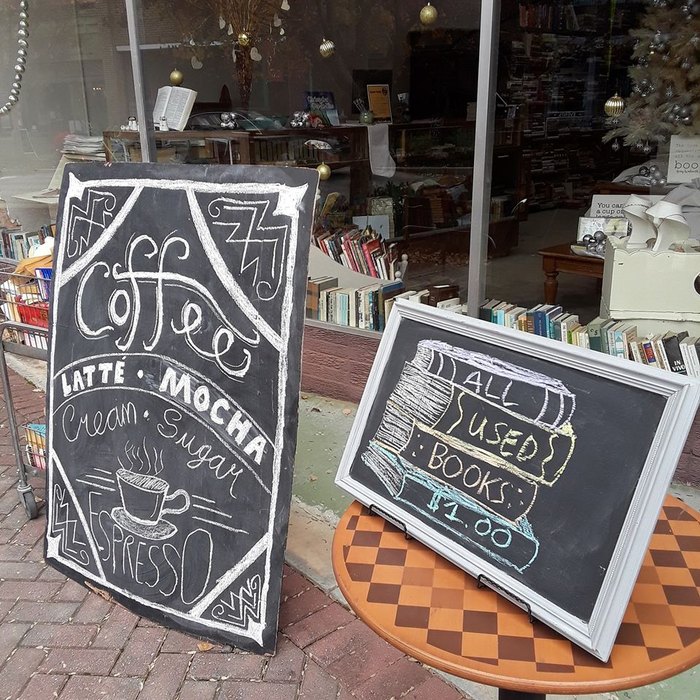 Coffee
LATTÉ · MOCHA
Cream · Sugar
ESPRESSO
ALL
USED
BOOKS
$1.00
You can
a cup of
boo